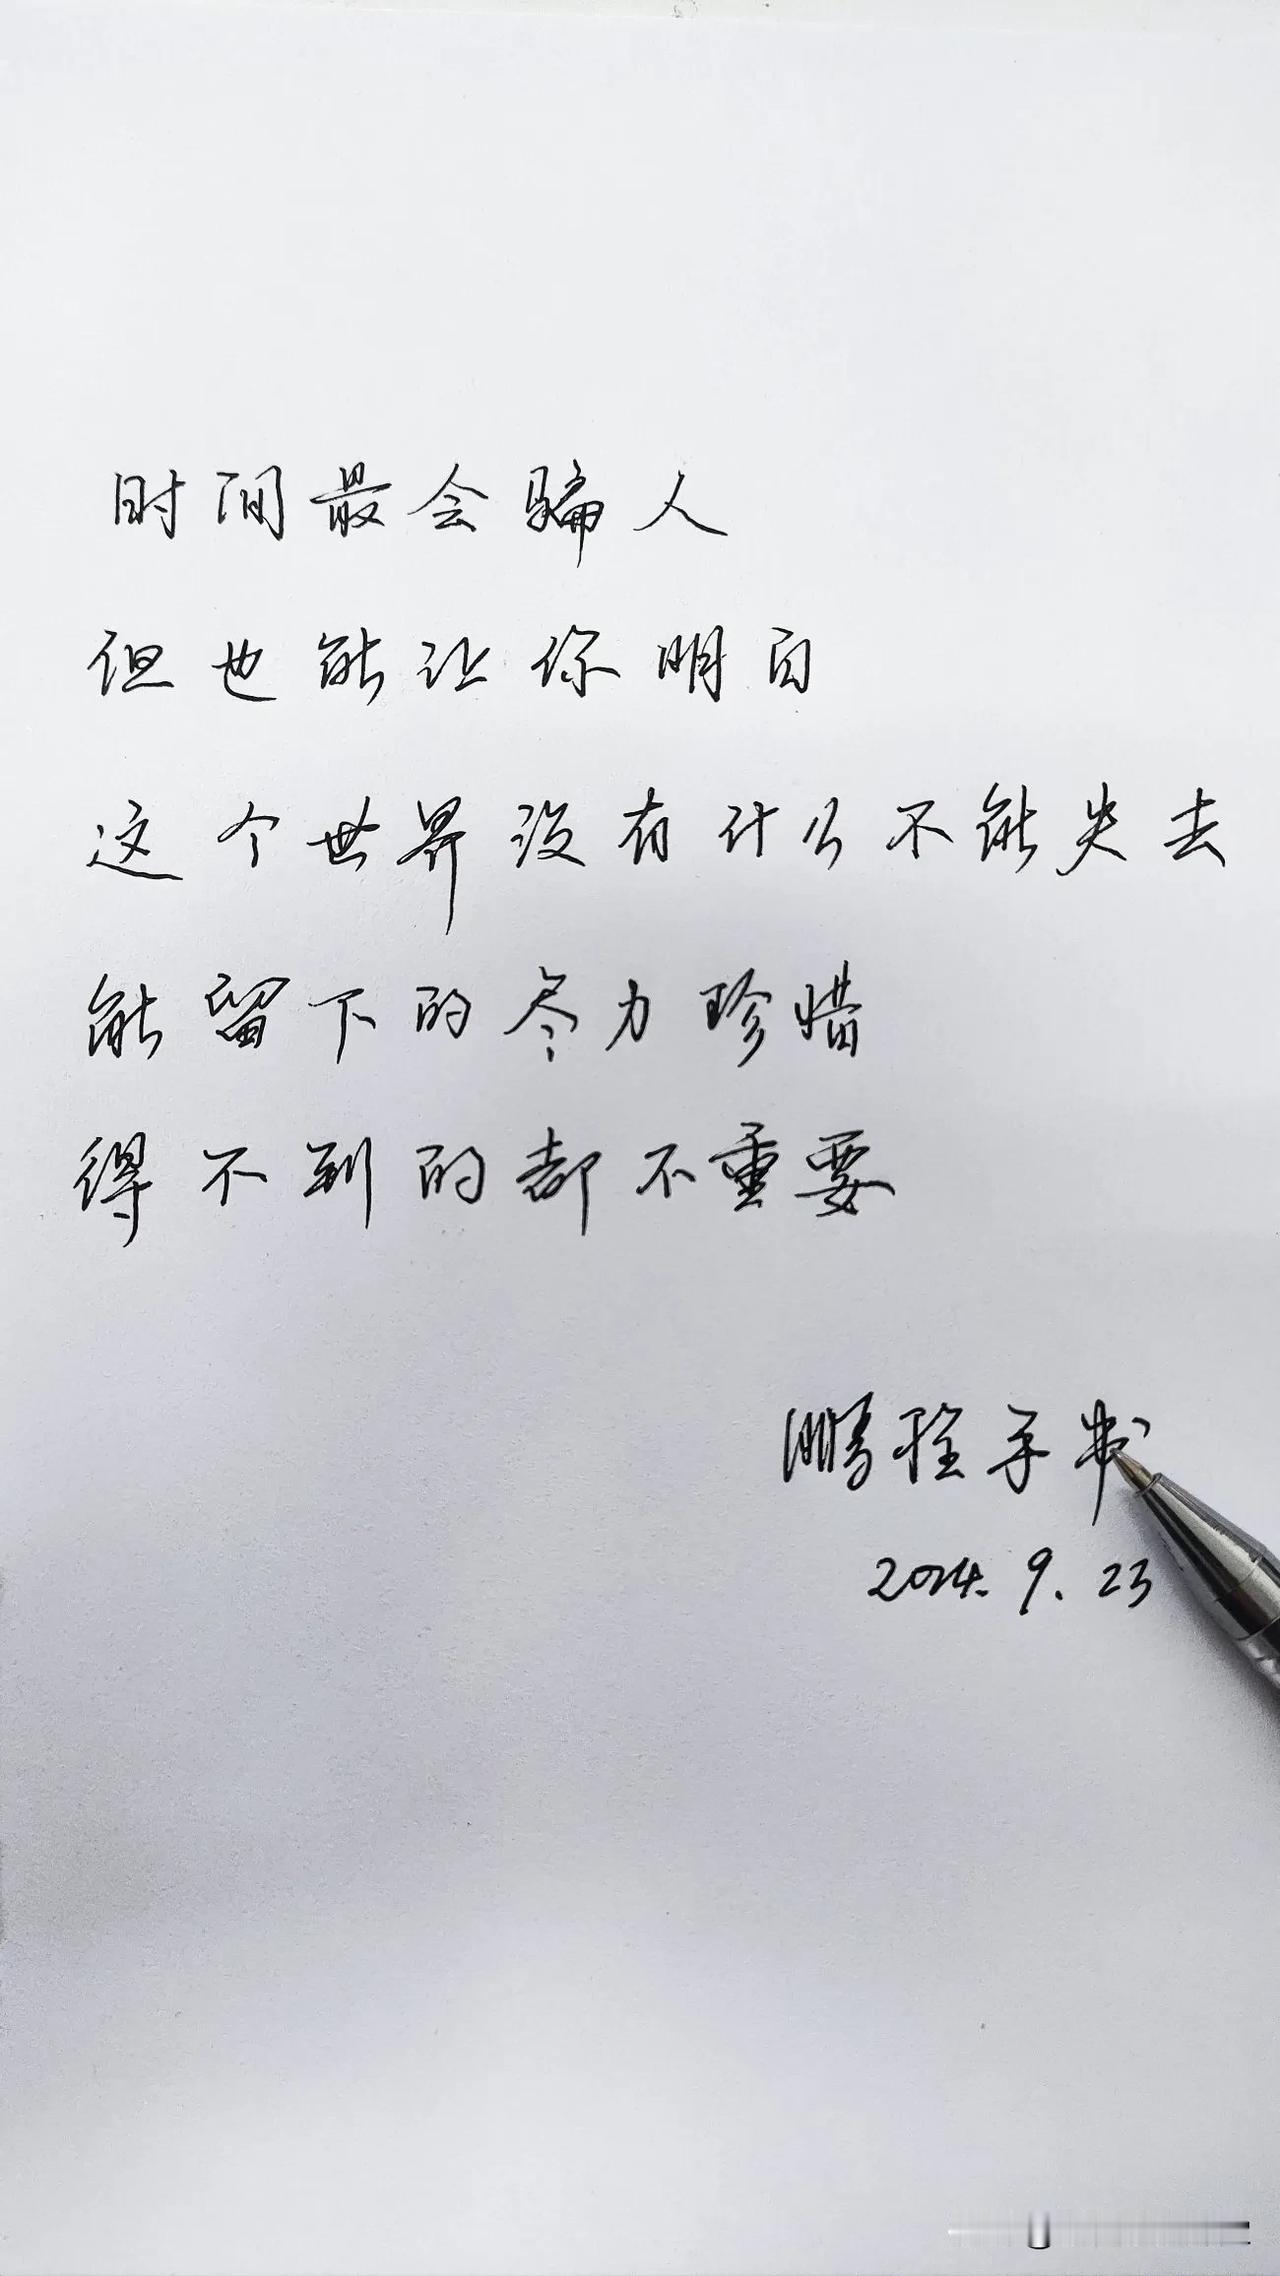 时间最会骗人
但也能让你明白
这个世界没有什么不能失去
能留下的尽力珍惜
得不到的都不重要
鹏程手书
2024.9.23